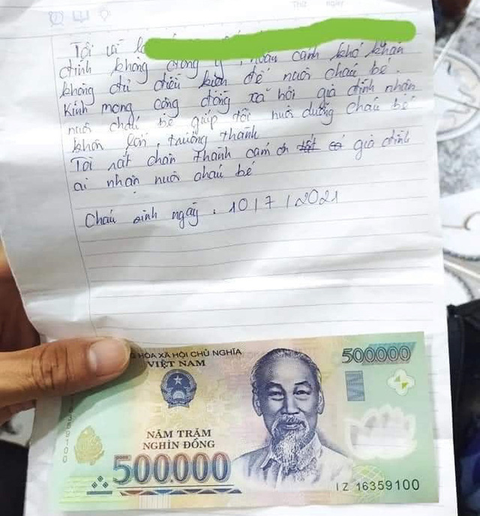 Tôi là
định không đồng ý, hoàn cảnh khó khăn
không đủ điều kiện để nuôi cháu bé.
Kính mong cộng đồng xã hội gia đình nhận
nuôi cháu bé giúp tôi nuôi dưỡng cháu bé
khôn lớn, trưởng thành
Tôi rất chân thành cảm ơn gia đình
ai nhận nuôi cháu bé
Cháu sinh ngày: 10/7/2021
HÒA XÃ HỘI CHỦ NGHĨA
VIỆT NAM
500000
NĂM TRĂM
NGHÌN ĐỒNG
500.000
IZ 16359100